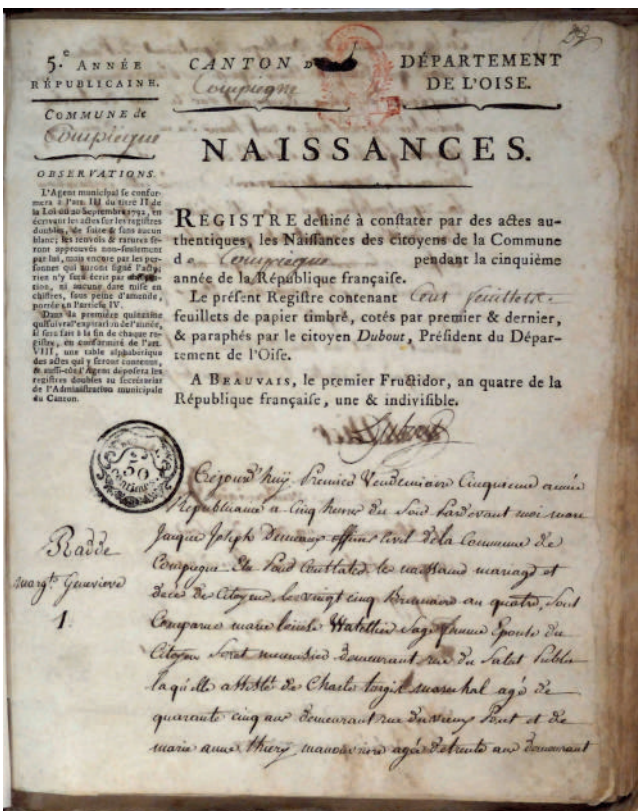 5.e ANNÉE
RÉPUBLICAINE.
COMMUNE de
Compiegne
CANTON D
Compiegne
DÉPARTEMENT
DE L'OISE.
NAISSANCES.
OBSERVATIONS.
L'Agent municipal se confor-
mera à l'art. III du titre II de
la Loi du 20 Septembre 1792, en
écrivant les actes sur les registres
doubles, de suite & sans aucun
blanc; les renvois & ratures se-
ront approuvés non-seulement
par lui, mais encore par les per-
sonnes qui auront signé l'acte;
rien n'y sera écrit par
tion, ni aucune date mise en
chiffres, sous peine d'amende,
portée en l'article IV.
Dans la première quinzaine
qui suivra l'expiration de l'année,
il sera fait à la fin de chaque re-
gistre, en conformité de l'art.
VIII, une table alphabétique
des actes qui y seront contenus,
& aussi-tôt l'Agent déposera les
registres doubles au secrétariat
de l'Administration municipale
du Canton.
REGISTRE destiné à constater par des actes au-
thentiques, les Naissances des citoyens de la Commune
d e Compiegne pendant la cinquième
année de la République française.
Le présent Registre contenant Cent feuillets
feuillets de papier timbré, cotés par premier & dernier,
& paraphés par le citoyen Dubout, Président du Dépar-
tement de l'Oise.
A BEAUVAIS, le premier Fructidor, an quatre de la
République française, une & indivisible.
Dubout
50
centimes
Radde
margte Genevieve
1
Cejourd'huy Premier Vendemiaire Cinquieme année
Republicaine a Cinq heure du Soir Pardevant moi
Jacques Joseph officier Civil de la Commune de
Compiegne Elu Pour Constater les naissance mariage et
deces des Citoyens, le vingt cinq Brumaire an quatre, Sont
Comparue marie louise Watellier Sage femme Epouse du
Citoyen Soret menuisier demeurant rue du Salut Public
laquelle assisté de Charles marechal agé de
quarante cinq ans demeurant rue du vieux Pont et de
marie anne thiery, manouvriere agée de trente ans demeurant